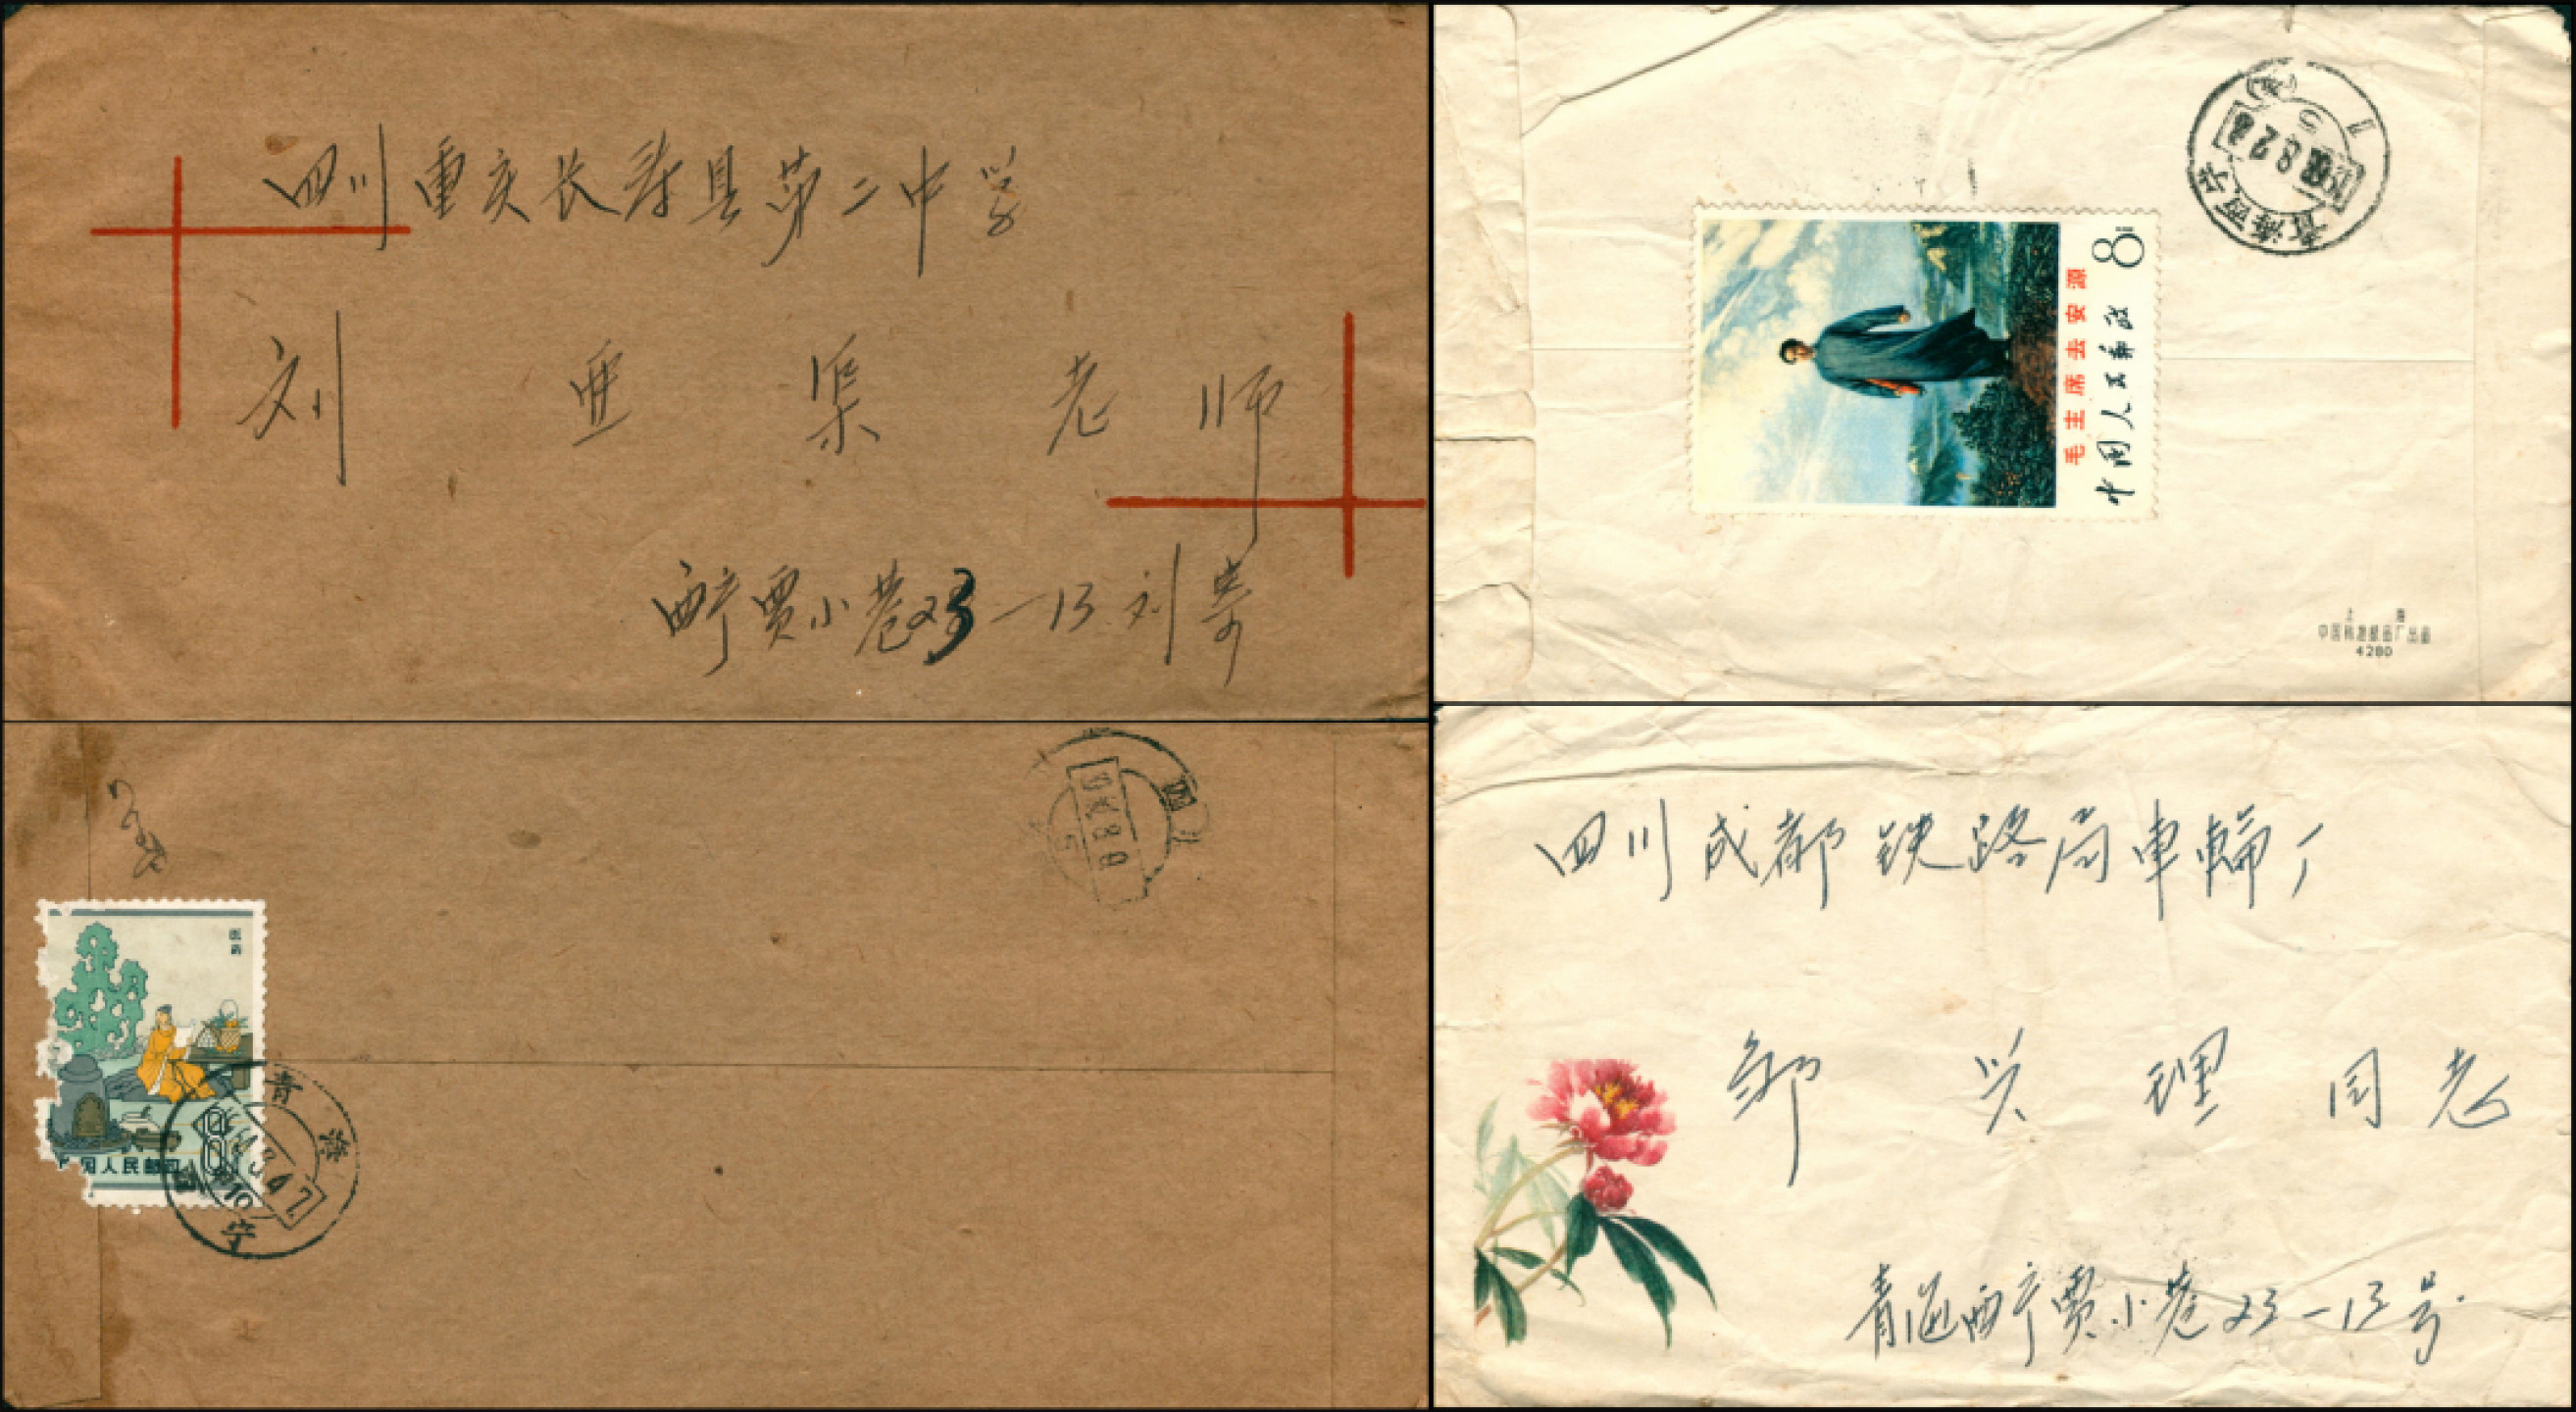 四川重庆长寿县第二中学
刘亚渠老师
西宁贾小巷23-13刘寄
医药
国人民邮政
8
青海
西宁
毛主席去安源
中国人民邮政
8
青海西宁
上海
中国标准邮函厂出品
4280
四川成都铁路局車輪厂
邹兴理同志
青海西宁贾小巷23-13号